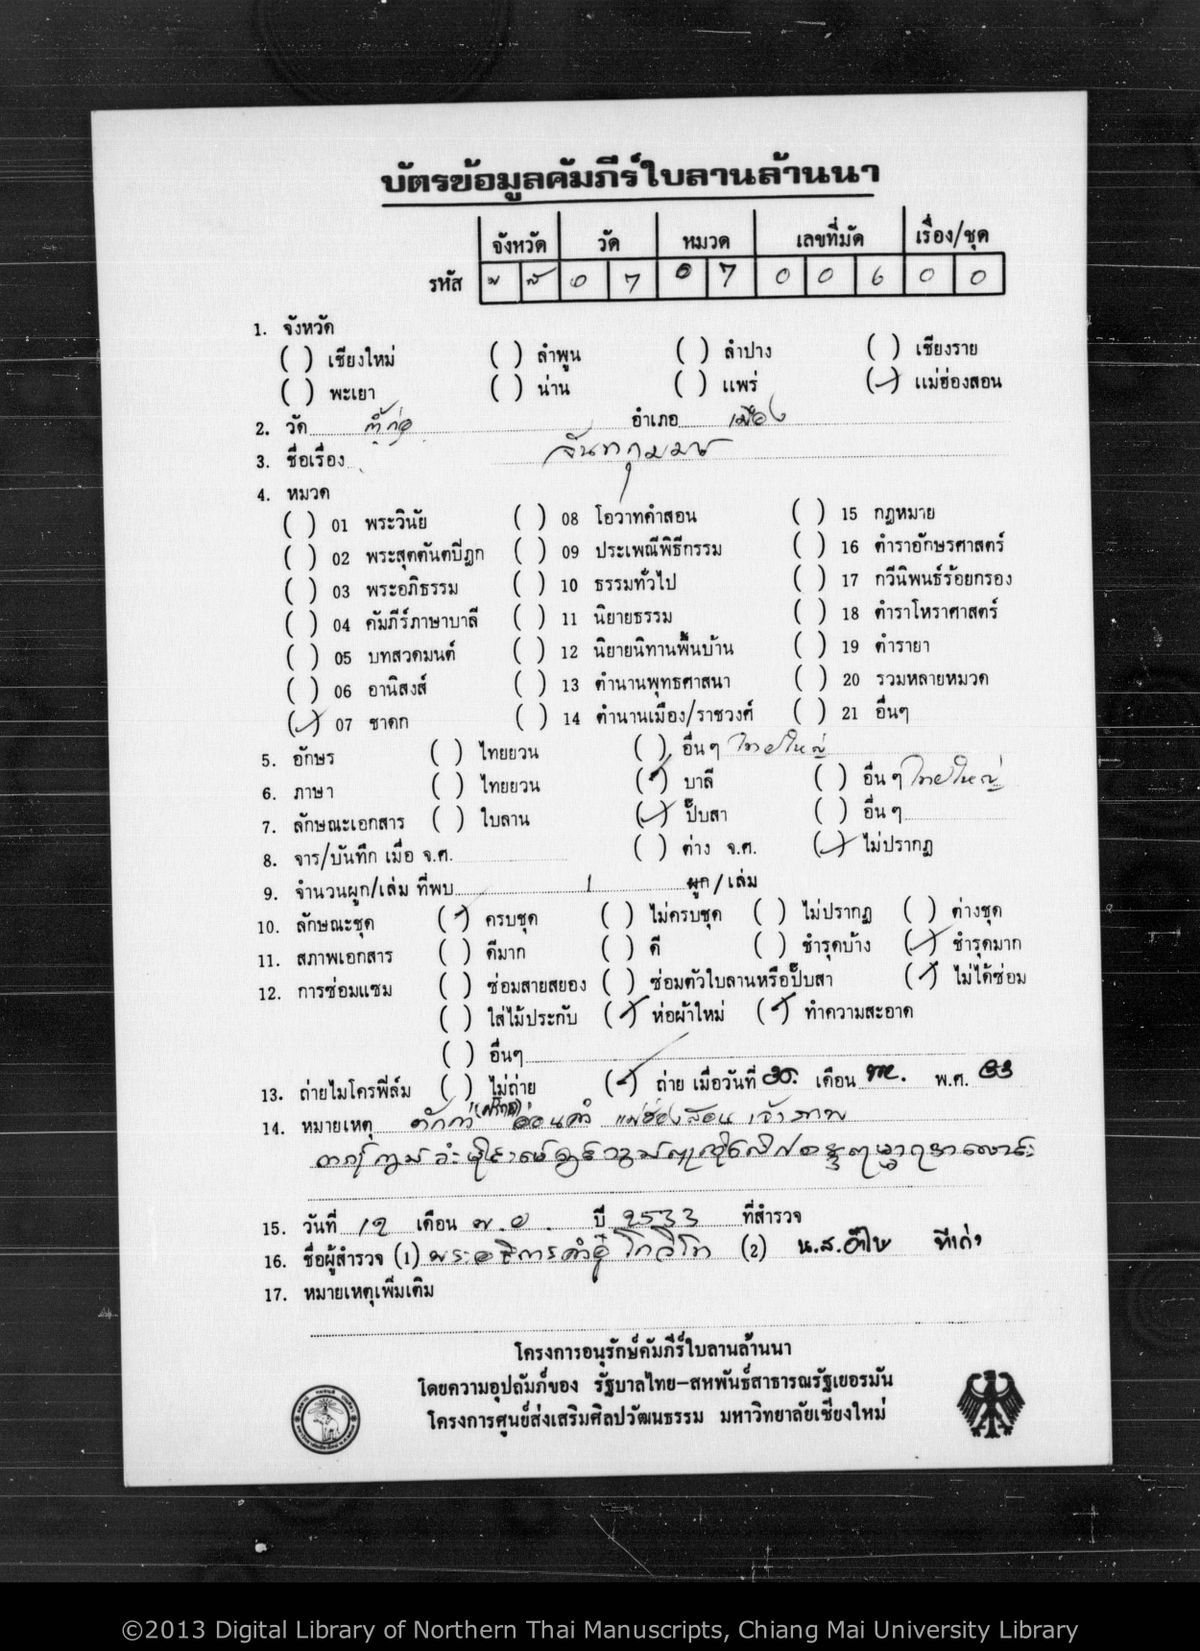 บัตรข้อมูลคัมภีร์ใบลานล้านนา
จังหวัด วัด หมวด เลขที่มัด เรื่อง/ชุด
รหัส 0 7 0 7 0 0 6 0 0
1. จังหวัด
( ) เชียงใหม่ ( ) ลำพูน ( ) ลำปาง ( ) เชียงราย
( ) พะเยา ( ) น่าน ( ) แพร่ (✓) แม่ฮ่องสอน
2. วัด อำเภอ เมือง
3. ชื่อเรื่อง
4. หมวด
( ) 01 พระวินัย ( ) 08 โอวาทคำสอน ( ) 15 กฎหมาย
( ) 02 พระสุตตันตปิฎก ( ) 09 ประเพณีพิธีกรรม ( ) 16 ตำราอักษรศาสตร์
( ) 03 พระอภิธรรม ( ) 10 ธรรมทั่วไป ( ) 17 กวีนิพนธ์ร้อยกรอง
( ) 04 คัมภีร์ภาษาบาลี ( ) 11 นิยายธรรม ( ) 18 ตำราโหราศาสตร์
( ) 05 บทสวดมนต์ ( ) 12 นิยายนิทานพื้นบ้าน ( ) 19 ตำรายา
( ) 06 อานิสงส์ ( ) 13 ตำนานพุทธศาสนา ( ) 20 รวมหลายหมวด
(✓) 07 ชาดก ( ) 14 ตำนานเมือง/ราชวงศ์ ( ) 21 อื่นๆ
5. อักษร ( ) ไทยยวน ( ) อื่นๆ ไทยใหญ่
6. ภาษา ( ) ไทยยวน (✓) บาลี ( ) อื่นๆ ไทยใหญ่
7. ลักษณะเอกสาร ( ) ใบลาน (✓) ปั๊บสา ( ) อื่นๆ
8. จาร/บันทึก เมื่อ จ.ศ. ( ) ต่าง จ.ศ. (✓) ไม่ปรากฏ
9. จำนวนผูก/เล่ม ที่พบ 1 ผูก/เล่ม
10. ลักษณะชุด (✓) ครบชุด ( ) ไม่ครบชุด ( ) ไม่ปรากฏ ( ) ต่างชุด
11. สภาพเอกสาร ( ) ดีมาก ( ) ดี ( ) ชำรุดบ้าง (✓) ชำรุดมาก
12. การซ่อมแซม ( ) ซ่อมสายสยอง ( ) ซ่อมตัวใบลานหรือปั๊บสา (✓) ไม่ได้ซ่อม
( ) ใส่ไม้ประกับ (✓) ห่อผ้าใหม่ (✓) ทำความสะอาด
( ) อื่นๆ
13. ถ่ายไมโครฟิล์ม ( ) ไม่ถ่าย (✓) ถ่าย เมื่อวันที่ เดือน พ.ศ. 33
14. หมายเหตุ แม่ฮ่องสอน เจ้าภาพ
15. วันที่ 12 เดือน พ.ย. ปี 2533 ที่สำรวจ
16. ชื่อผู้สำรวจ (1) พระอธิการ (2) น.ส.
17. หมายเหตุเพิ่มเติม
โครงการอนุรักษ์คัมภีร์ใบลานล้านนา
โดยความอุปถัมภ์ของ รัฐบาลไทย-สหพันธ์สาธารณรัฐเยอรมัน
โครงการศูนย์ส่งเสริมศิลปวัฒนธรรม มหาวิทยาลัยเชียงใหม่
©2013 Digital Library of Northern Thai Manuscripts, Chiang Mai University Library